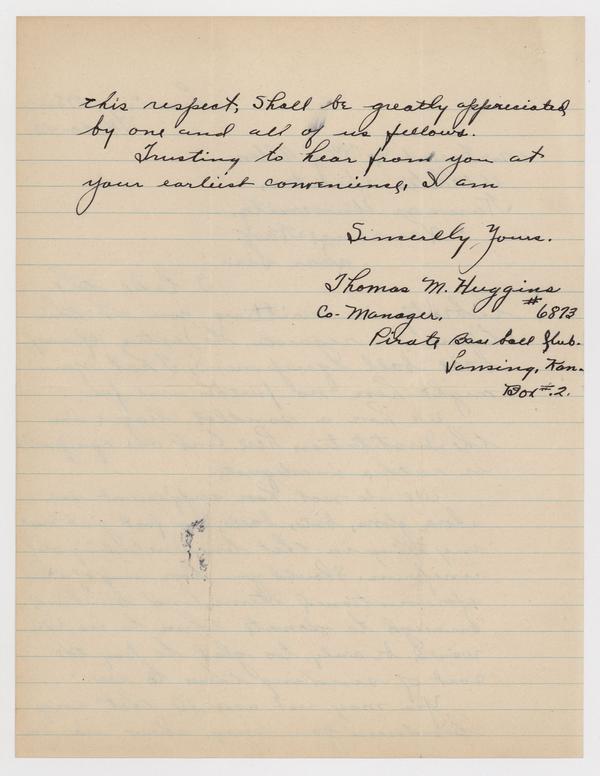 this respect, Shall be greatly appreciated
by one and all of us fellows.
Trusting to hear from you at
your earliest convenience, I am
Sincerlly Yours.
Thomas M. Huggins
Co-Manager. #6873
Pirate Base ball Club.
Lansing, Kan.
Box #.2.